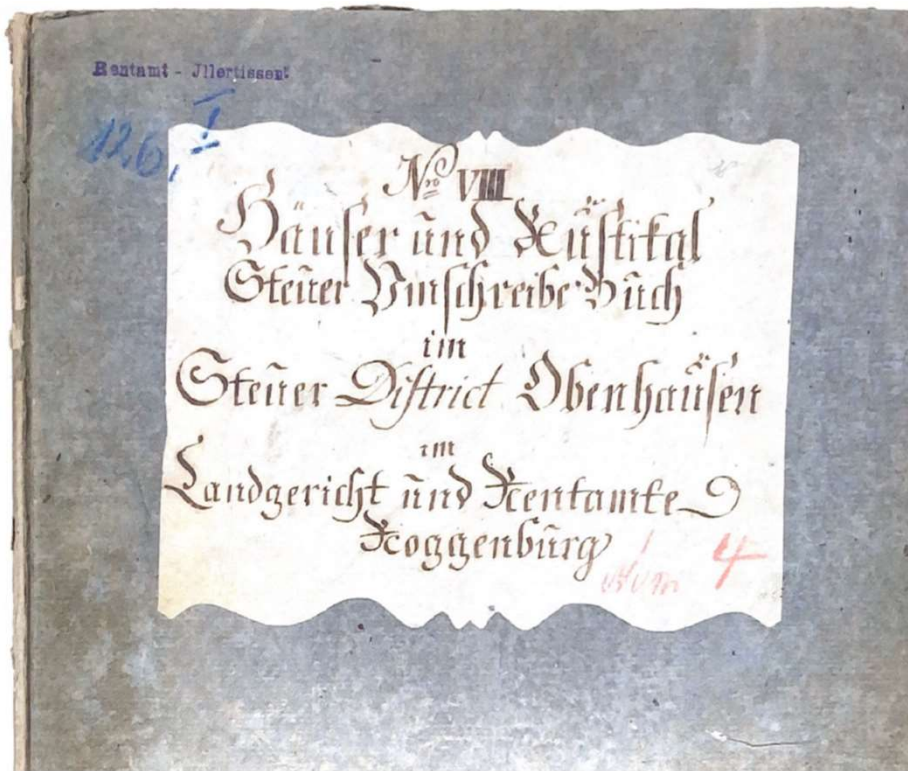 Rentamt - Illertissen
126. I
No VIII
Häuser und Rustikal
Steuer Umschreibe-Buch
im
Steuer District Obenhausen
im
Landgericht und Rentamte
Roggenburg
4